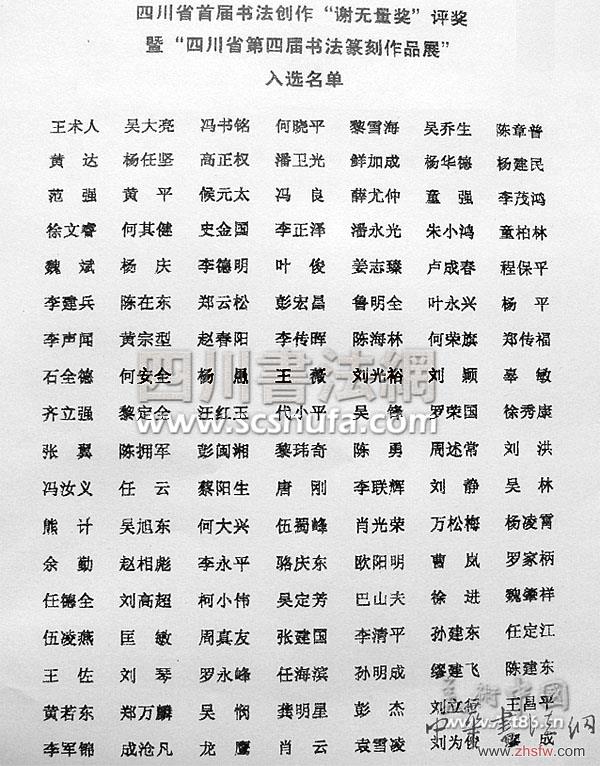 四川省首届书法创作“谢无量奖”评奖
暨“四川省第四届书法篆刻作品展”
入选名单
王术人 吴大亮 冯书铭 何晓平 黎雪海 吴乔生 陈章普
黄 达 杨任坚 高正权 潘卫光 鲜加成 杨华德 杨建民
范 强 黄 平 候元太 冯 良 薛尤仲 童 强 李茂鸿
徐文睿 何其健 史金国 李正泽 潘永光 朱小鸿 童柏林
魏 斌 杨 庆 李德明 叶 俊 姜志臻 卢成春 程保平
李建兵 陈在东 郑云松 彭宏昌 鲁明全 叶永兴 杨 平
李声闻 黄宗型 赵春阳 李传晖 陈海林 何荣旗 郑传福
四川書法網
石全德 何安全 杨 愚 王 薇 刘光裕 刘 颖 辜 敏
www.scshufa.com
齐立强 黎定全 汪红玉 代小平 吴 锋 罗荣国 徐秀康
张 翼 陈拥军 彭闽湘 黎玮奇 陈 勇 周述常 刘 洪
冯汝义 任 云 蔡阳生 唐 刚 李联辉 刘 静 吴 林
熊 计 吴旭东 何大兴 伍蜀峰 肖光荣 万松梅 杨凌霄
余 勤 赵相彪 李永平 骆庆东 欧阳明 曹 岚 罗家柄
任德全 刘高超 柯小伟 吴定芳 巴山夫 徐 进 魏肇祥
伍凌燕 匡 敏 周真友 张建国 李清平 孙建东 任定江
王 佐 刘 琴 罗永峰 任海滨 孙明成 缪建飞 陈建东
美術中國
黄若东 郑万麟 吴 悯 龚明星 彭 杰 刘立 王昌平
中華書法网
李军锦 成沧凡 龙 鹰 肖 云 袁雪凌 刘为 成
www.zhsfw.com